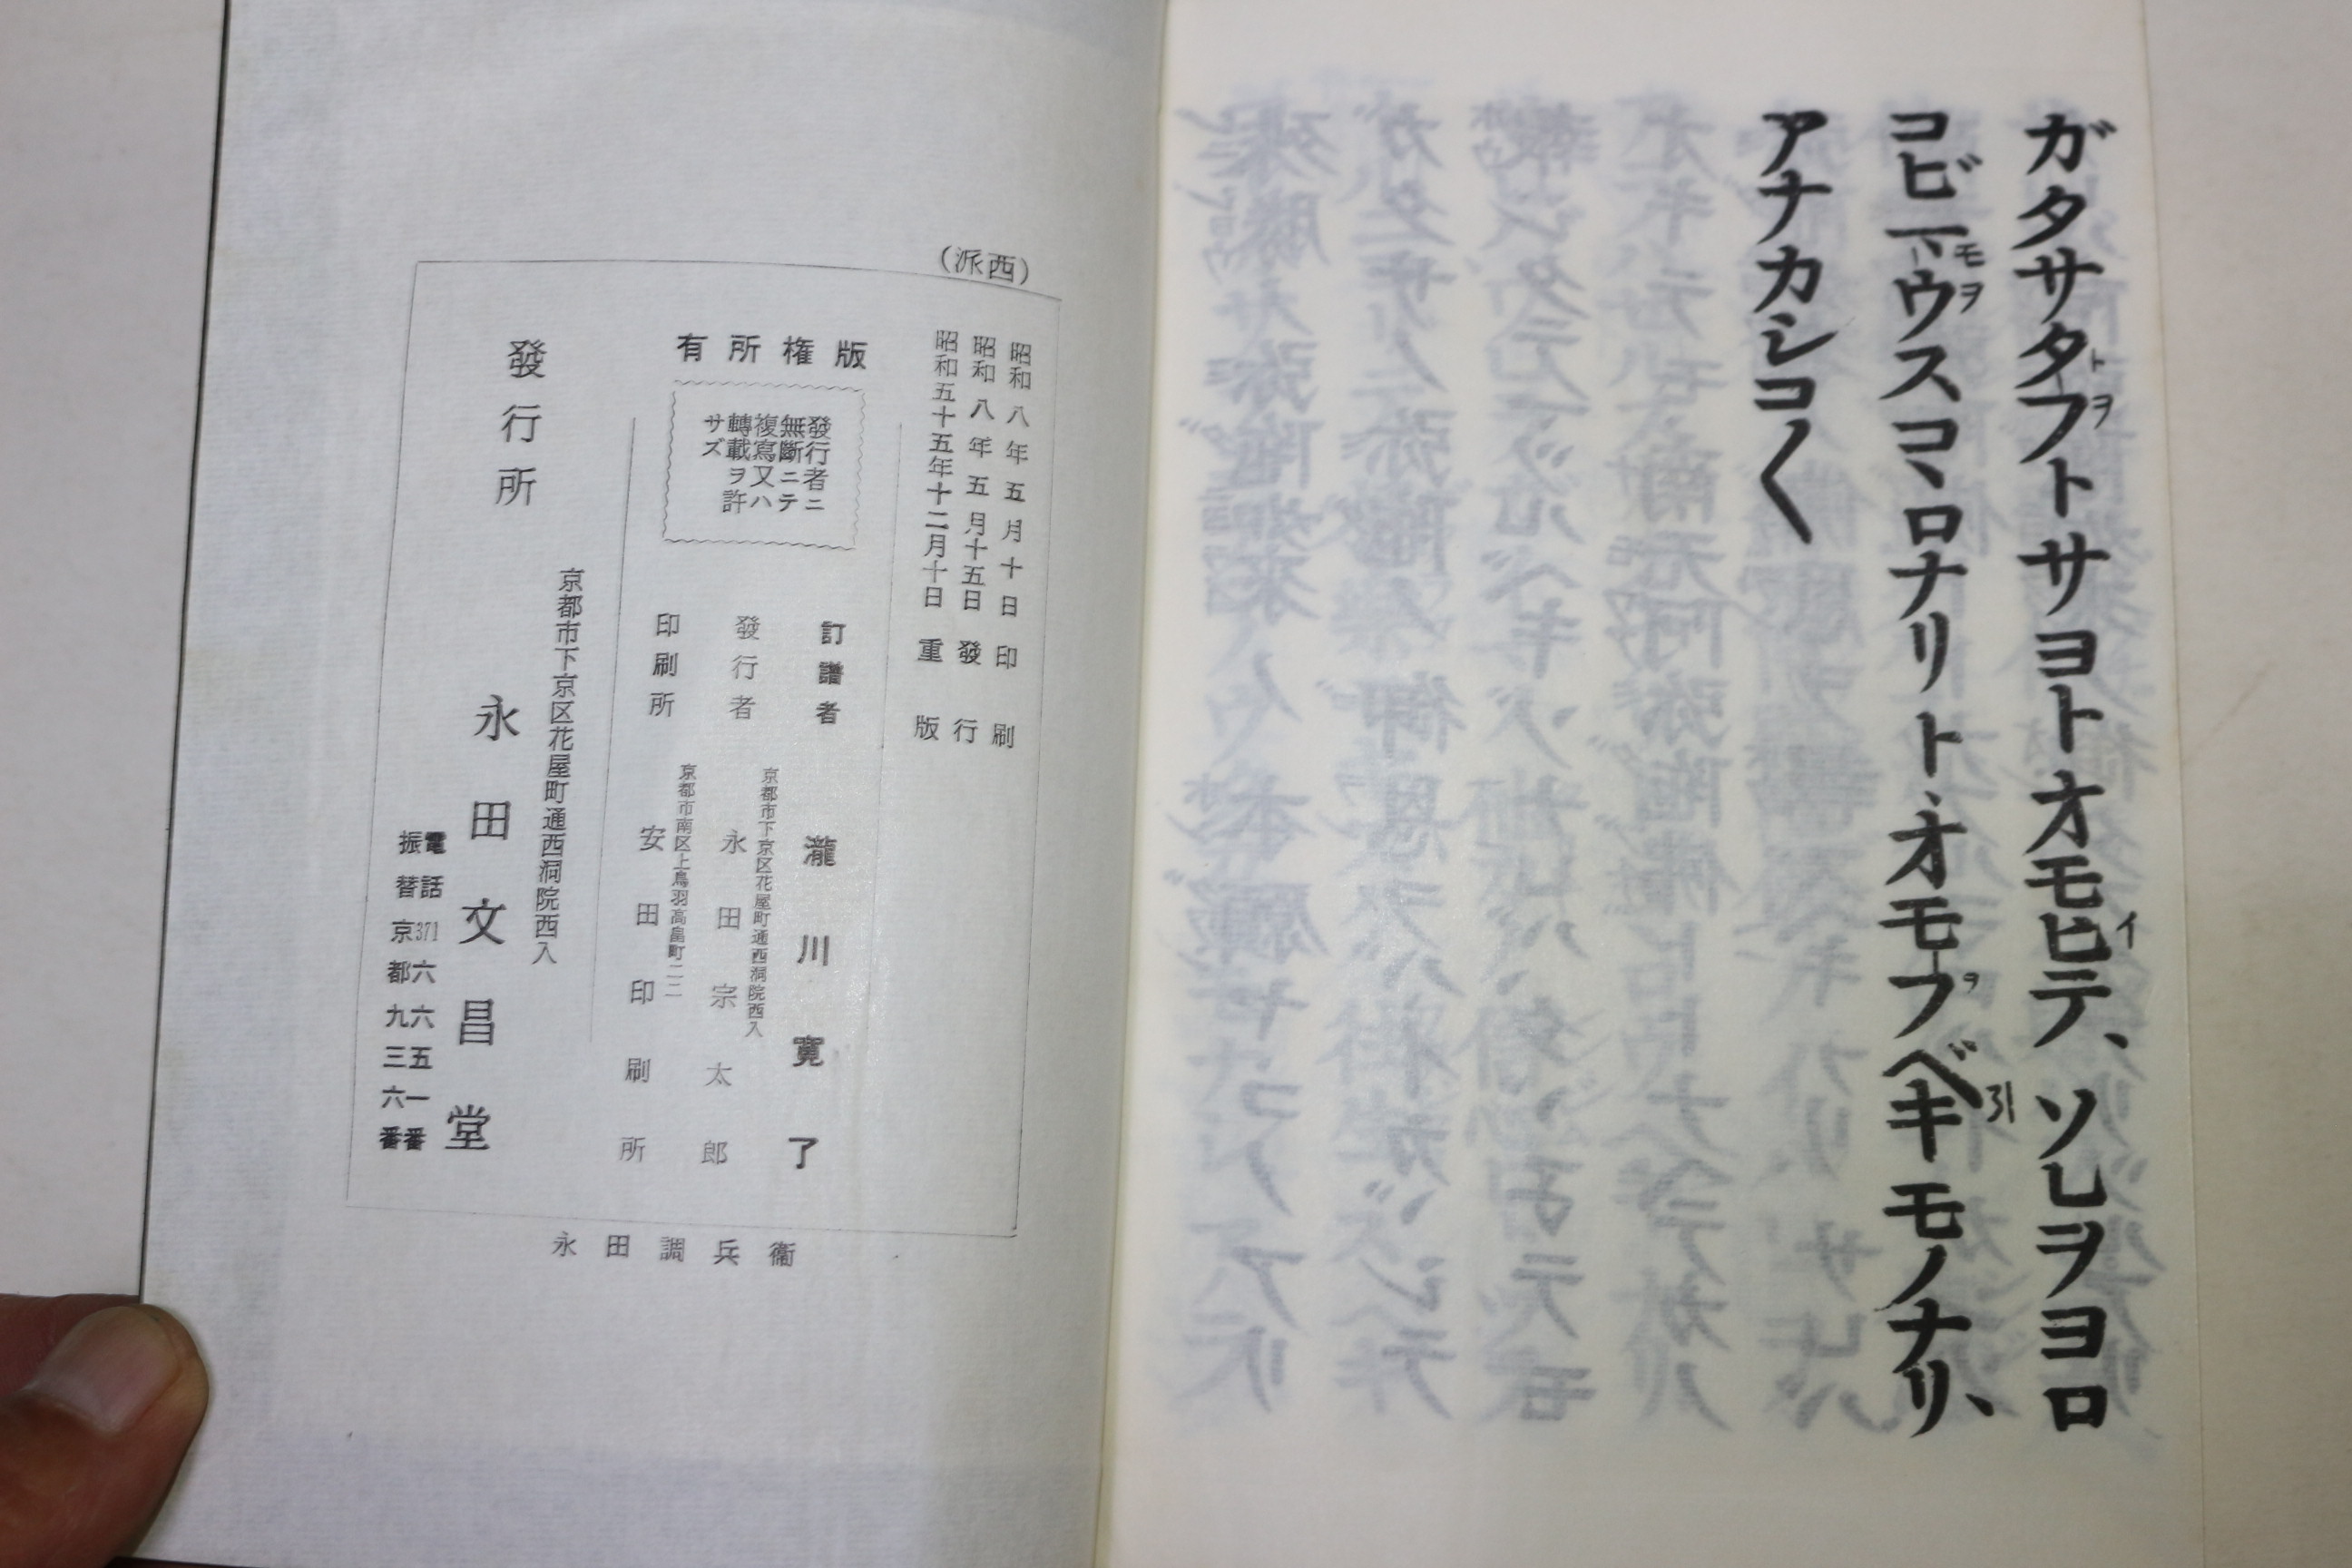 ガタサタフトサヨトオモヒテ、ソレヲヨロ
コビマウスコヽロナリト、オモフベキモノナリ、
アナカシコ〱
(西派)
昭和八年五月十日印刷
昭和八年五月十五日發行
昭和五十五年十二月十日重版
版権所有
發行者ニ
無斷ニテ
複寫又ハ
轉載ヲ許
サズ
訂譜者 瀧川寛了
京都市下京区花屋町通西洞院西入
發行者 永田宗太郎
京都市南区上鳥羽高畠町二二
印刷所 安田印刷所
京都市下京区花屋町通西洞院西入
發行所 永田文昌堂
電話371六六五一番
振替京都九三六番
永田調兵衞